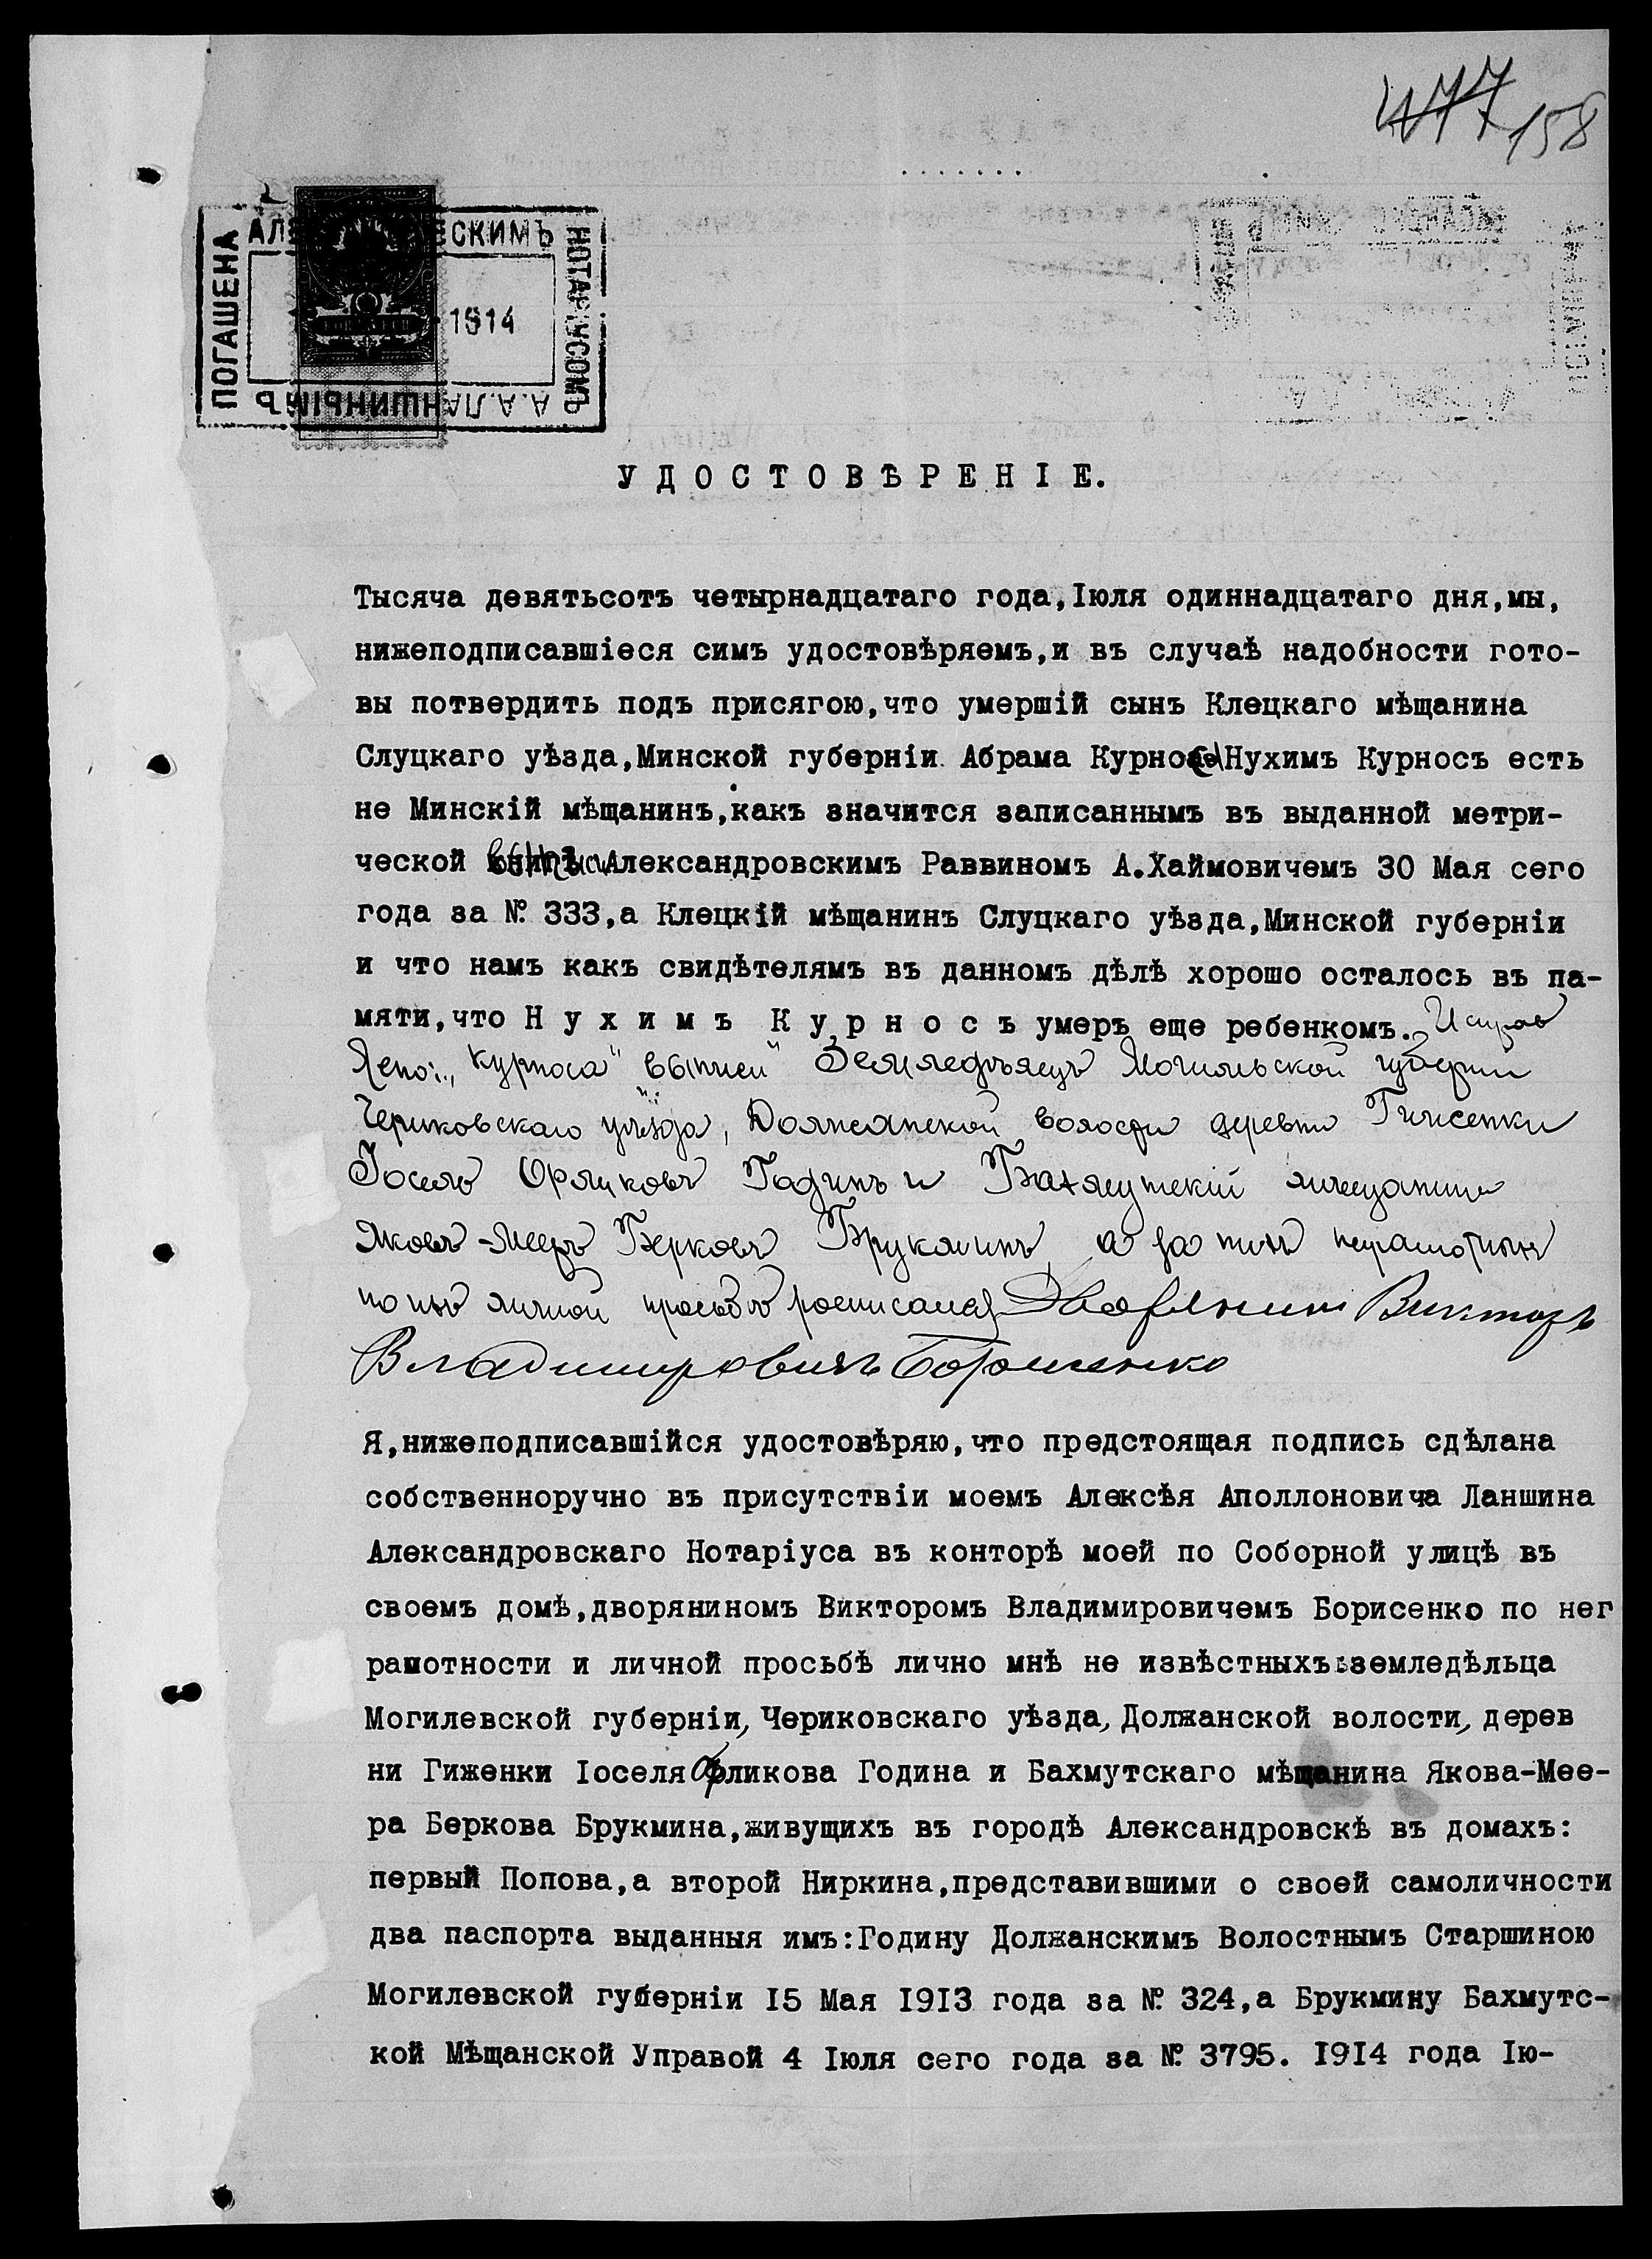 477 158
ПОГАШЕНА АЛ СКИМЪ НОТАРІУСОМЪ
1914
А.А.ЛАНШИНЫМЪ
УДОСТОВѢРЕНІЕ.
Тысяча девятьсотъ четырнадцатаго года,Іюля одиннадцатаго дня,мы,
нижеподписавшіеся симъ удостовѣряемъ,и въ случаѣ надобности гото-
вы потвердить подъ присягою,что умершій сынъ Клецкаго мѣщанина
Слуцкаго уѣзда,Минской губерніи Абрама Курноса Нухимъ Курносъ есть
не Минскій мѣщанинъ,какъ значится записаннымъ въ выданной метри-
ческой выписи Александровскимъ Раввиномъ А.Хаймовичемъ 30 Мая сего
года за №. 333,а Клецкій мѣщанинъ Слуцкаго уѣзда,Минской губерніи
и что намъ какъ свидѣтелямъ въ данномъ дѣлѣ хорошо осталось въ па-
мяти,что Нухимъ Курносъ умеръ еще ребенкомъ. Исправ
лено: „Курноса" выписи" Земледѣлецъ Могилевской губерніи
Чериковскаго уѣзда, Должанской волости деревни Гиженки
Іосель Орликовъ Годинъ и Бахмутскій мѣщанинъ
Яковъ-Мееръ Берковъ Брукминъ, а за нихъ неграмотныхъ
по ихъ личной просьбѣ росписался Дворянинъ Викторъ
Владимировичъ Борисенко
Я,нижеподписавшійся удостовѣряю,что предстоящая подпись сдѣлана
собственноручно въ присутствіи моемъ Алексѣя Аполлоновича Ланшина
Александровскаго Нотаріуса въ конторѣ моей по Соборной улицѣ въ
своемъ домѣ,дворяниномъ Викторомъ Владимировичемъ Борисенко по нег
рамотности и личной просьбѣ лично мнѣ не извѣстныхъ:земледѣльца
Могилевской губерніи, Чериковскаго уѣзда, Должанской волости, дерев
ни Гиженки Іоселя Орликова Година и Бахмутскаго мѣщанина Якова-Мее-
ра Беркова Брукмина,живущихъ въ городѣ Александровскѣ въ домахъ:
первый Попова,а второй Ниркина,представившими о своей самоличности
два паспорта выданныя имъ:Годину Должанскимъ Волостнымъ Старшиною
Могилевской губерніи 15 Мая 1913 года за №. 324,а Брукмину Бахмутс-
кой Мѣщанской Управой 4 Іюля сего года за №. 3795. 1914 года Ію-